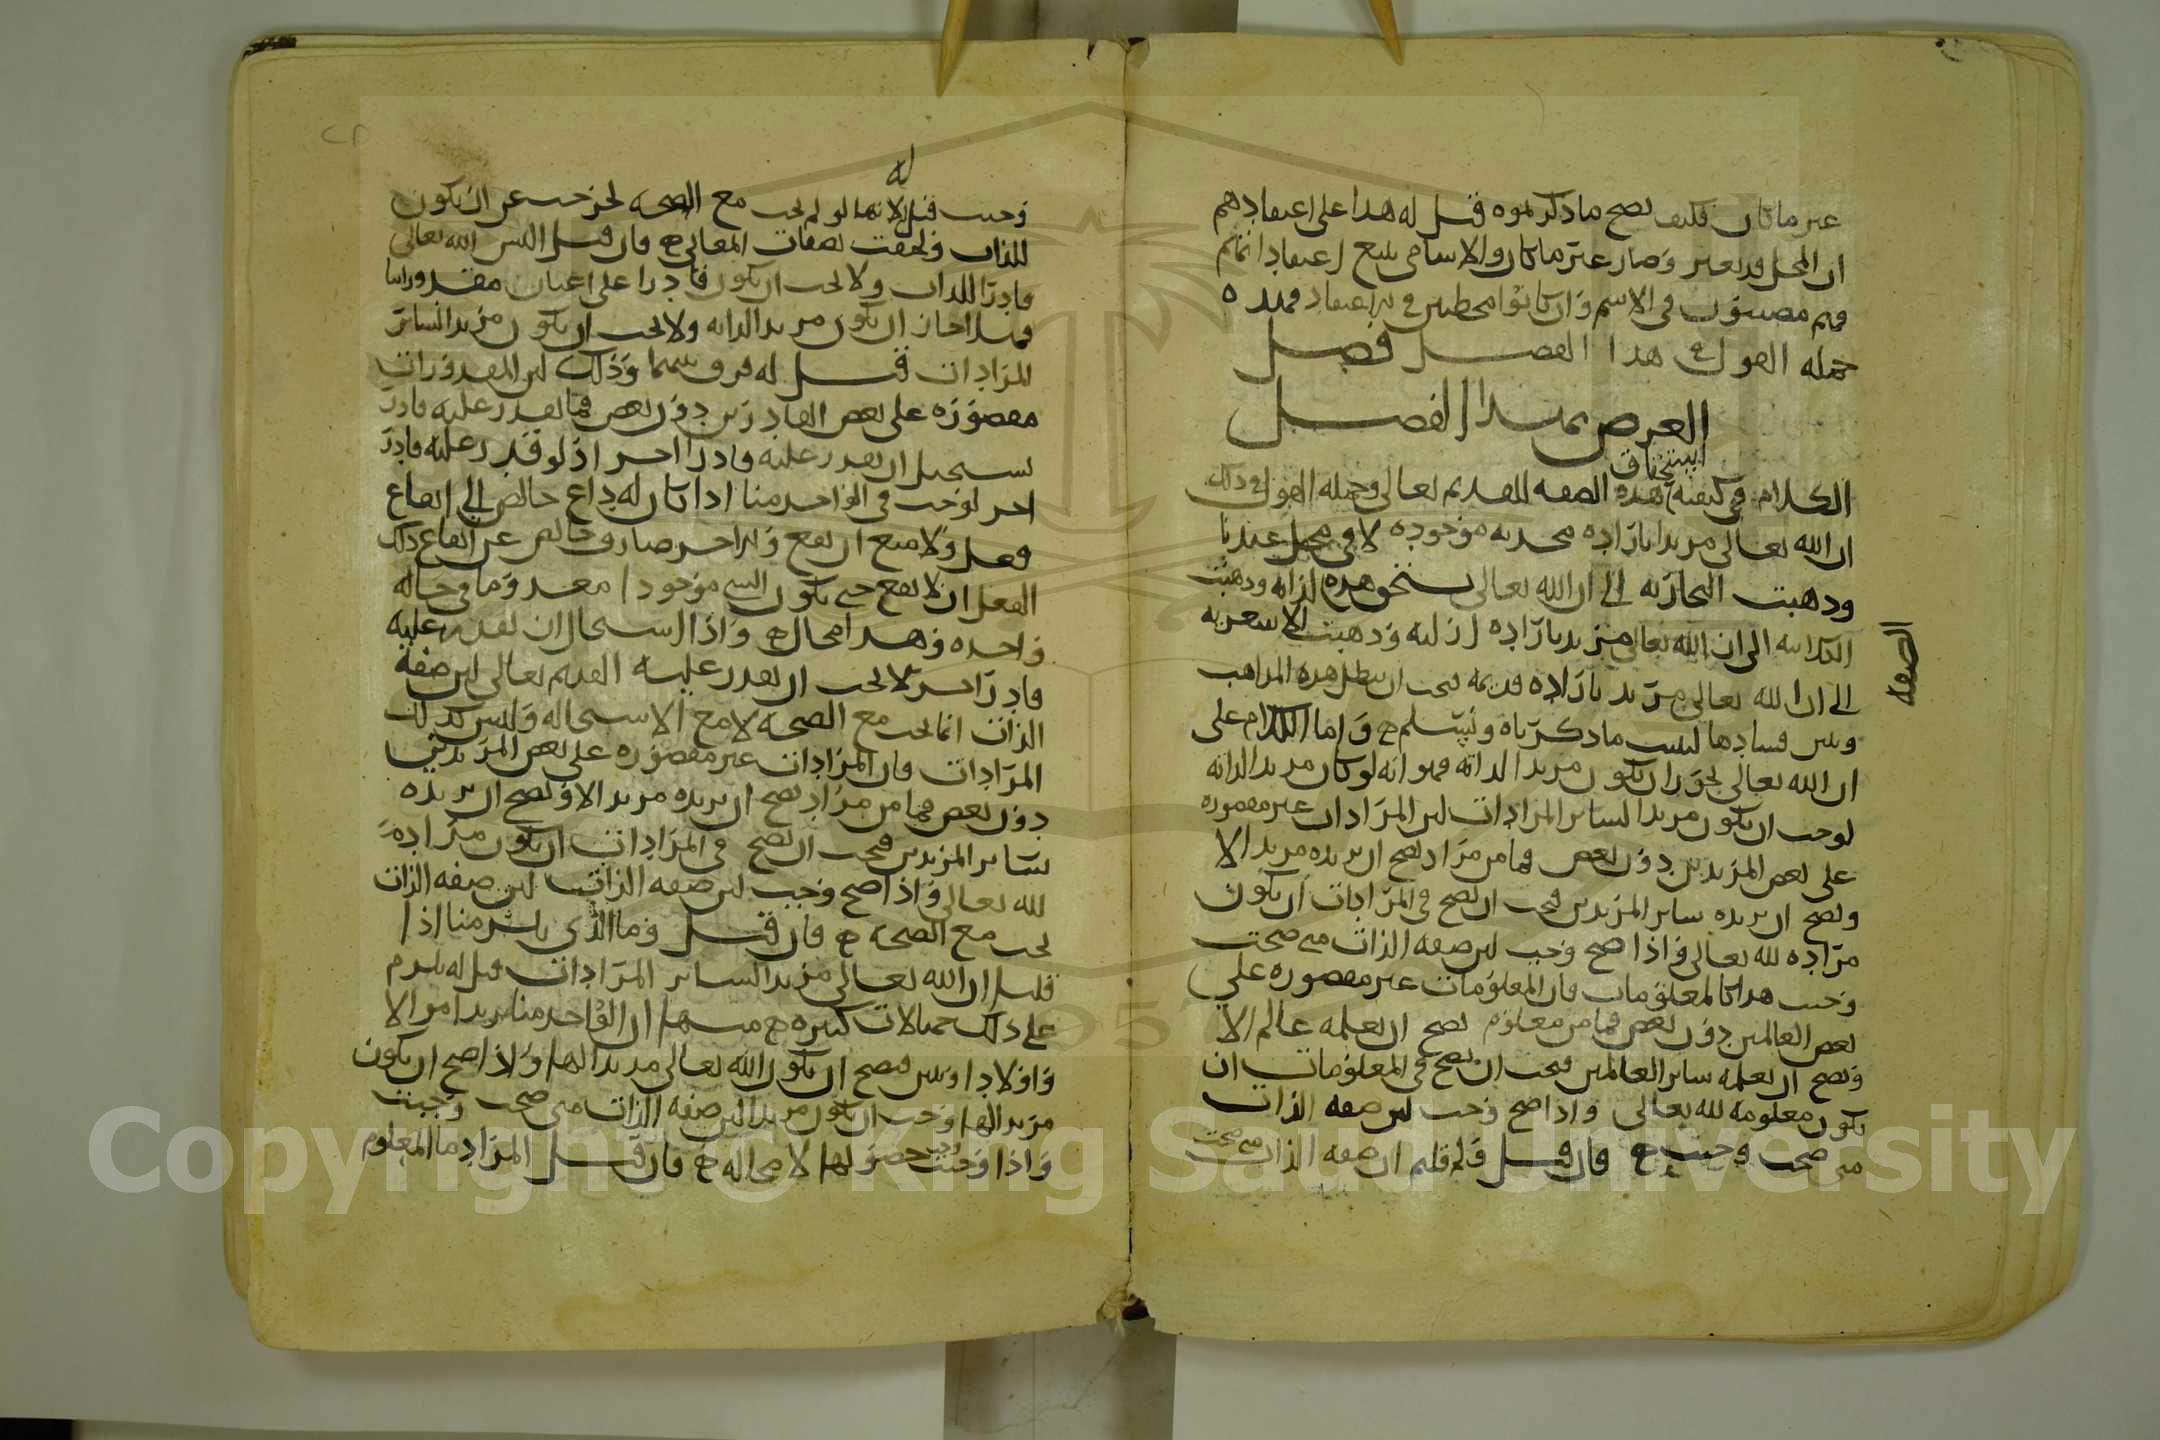 غير ما كان فكيف يصح ما ذكرتموه قيل له هذا على اعتقادهم
ان المحل قد تغير وصار غير ما كان والاسامي تتبع اعتقاداتهم
فهم مصيبون في الاسم وان كانوا مخطين في اعتقادهم فهذه
جملة القول في هذا الفصل فصل
الغرض بهذا الفصل
الكلام في كيفية استحقاق هذه الصفة للقديم تعالى وجملة القول في ذلك
ان الله تعالى مريد بارادة محدثة موجودة لا في محل عندنا
وذهبت النجارية الى ان الله تعالى يستحق هذه لذاته وذهبت
الصفة
الكلابية الى ان الله تعالى مريد بارادة ازلية وذهبت الاشعرية
الى ان الله تعالى مريد بارادة قديمة فيجب ان نبطل هذه المذاهب
ونبين فسادها ليثبت ما ذكرناه ويسلم واما الكلام على
ان الله تعالى لا يجوز ان يكون مريدا لذاته فهو انه لو كان مريدا لذاته
لوجب ان يكون مريدا لسائر المرادات لان المرادات غير مقصورة
على بعض المريدين دون بعض فما من مراد يصح ان يريده مريد الا
ويصح ان يريده سائر المريدين فيجب ان يصح في المرادات ان يكون
مرادة لله تعالى واذا صح وجب لان صفة الذات متى صحت
وجبت هذا كالمعلومات فان المعلومات غير مقصورة على
بعض العالمين دون بعض فما من معلوم يصح ان يعلمه عالم الا
ويصح ان يعلمه سائر العالمين فيجب ان يصح في المعلومات ان
يكون معلومة لله تعالى واذا صح وجب لان صفة الذات
متى صحت وجبت فان قيل ولم قلتم ان صفة الذات متى صحت
وجبت قيل له لانها لو لم تجب مع الصحة لخرجت عن ان يكون
للذات ولحقت بصفات المعاني فان قيل اليس الله تعالى
قادرا للذات ولا يجب ان يكون قادرا على اعيان مقدوراتنا
فهلا جاز ان يكون مريدا لذاته ولا يجب ان يكون مريدا لسائر
المرادات قيل له فرق بينهما وذلك لان المقدورات
مقصورة على بعض القادرين دون بعض فما يقدر عليه قادر
يستحيل ان يقدر عليه قادر اخر اذ لو قدر عليه قادر
اخر لوجب في الواحد منا اذا كان له داع خالص الى ايقاع
فعل ولا منع ان يقع ولاخر صارف خالص عن ايقاع ذلك
الفعل ان لا يقع حتى يكون الشي موجودا معدوما في حالة
واحدة وهذا محال واذا استحال ان يقدر عليه
قادر اخر لا يجب ان يقدر عليه القديم تعالى لان صفة
الذات انما تجب مع الصحة لا مع الاستحالة وليس كذلك
المرادات فان المرادات غير مقصورة على بعض المريدين
دون بعض فما من مراد يصح ان يريده مريد الا ويصح ان يريده
سائر المريدين فيجب ان يصح في المرادات ان يكون مرادة
لله تعالى واذا صح وجب لان صفة الذات لان صفة الذات
تجب مع الصحة فان قيل وما الذي يلزمنا اذا
قلنا ان الله تعالى مريد لسائر المرادات قيل له يلزم
على ذلك جهالات كثيرة منها ان الواحد منا يريد اموالا
واولادا وبنين فيصح ان يكون الله تعالى مريدا لها واذا صح ان يكون
مريدا لها وجب ان يكون مريدا لان صفة الذات متى صحت وجبت
واذا وجبت وجب حصولها لا محالة فان قيل المراد ما المعلوم
Copyright © King Saud University
1957